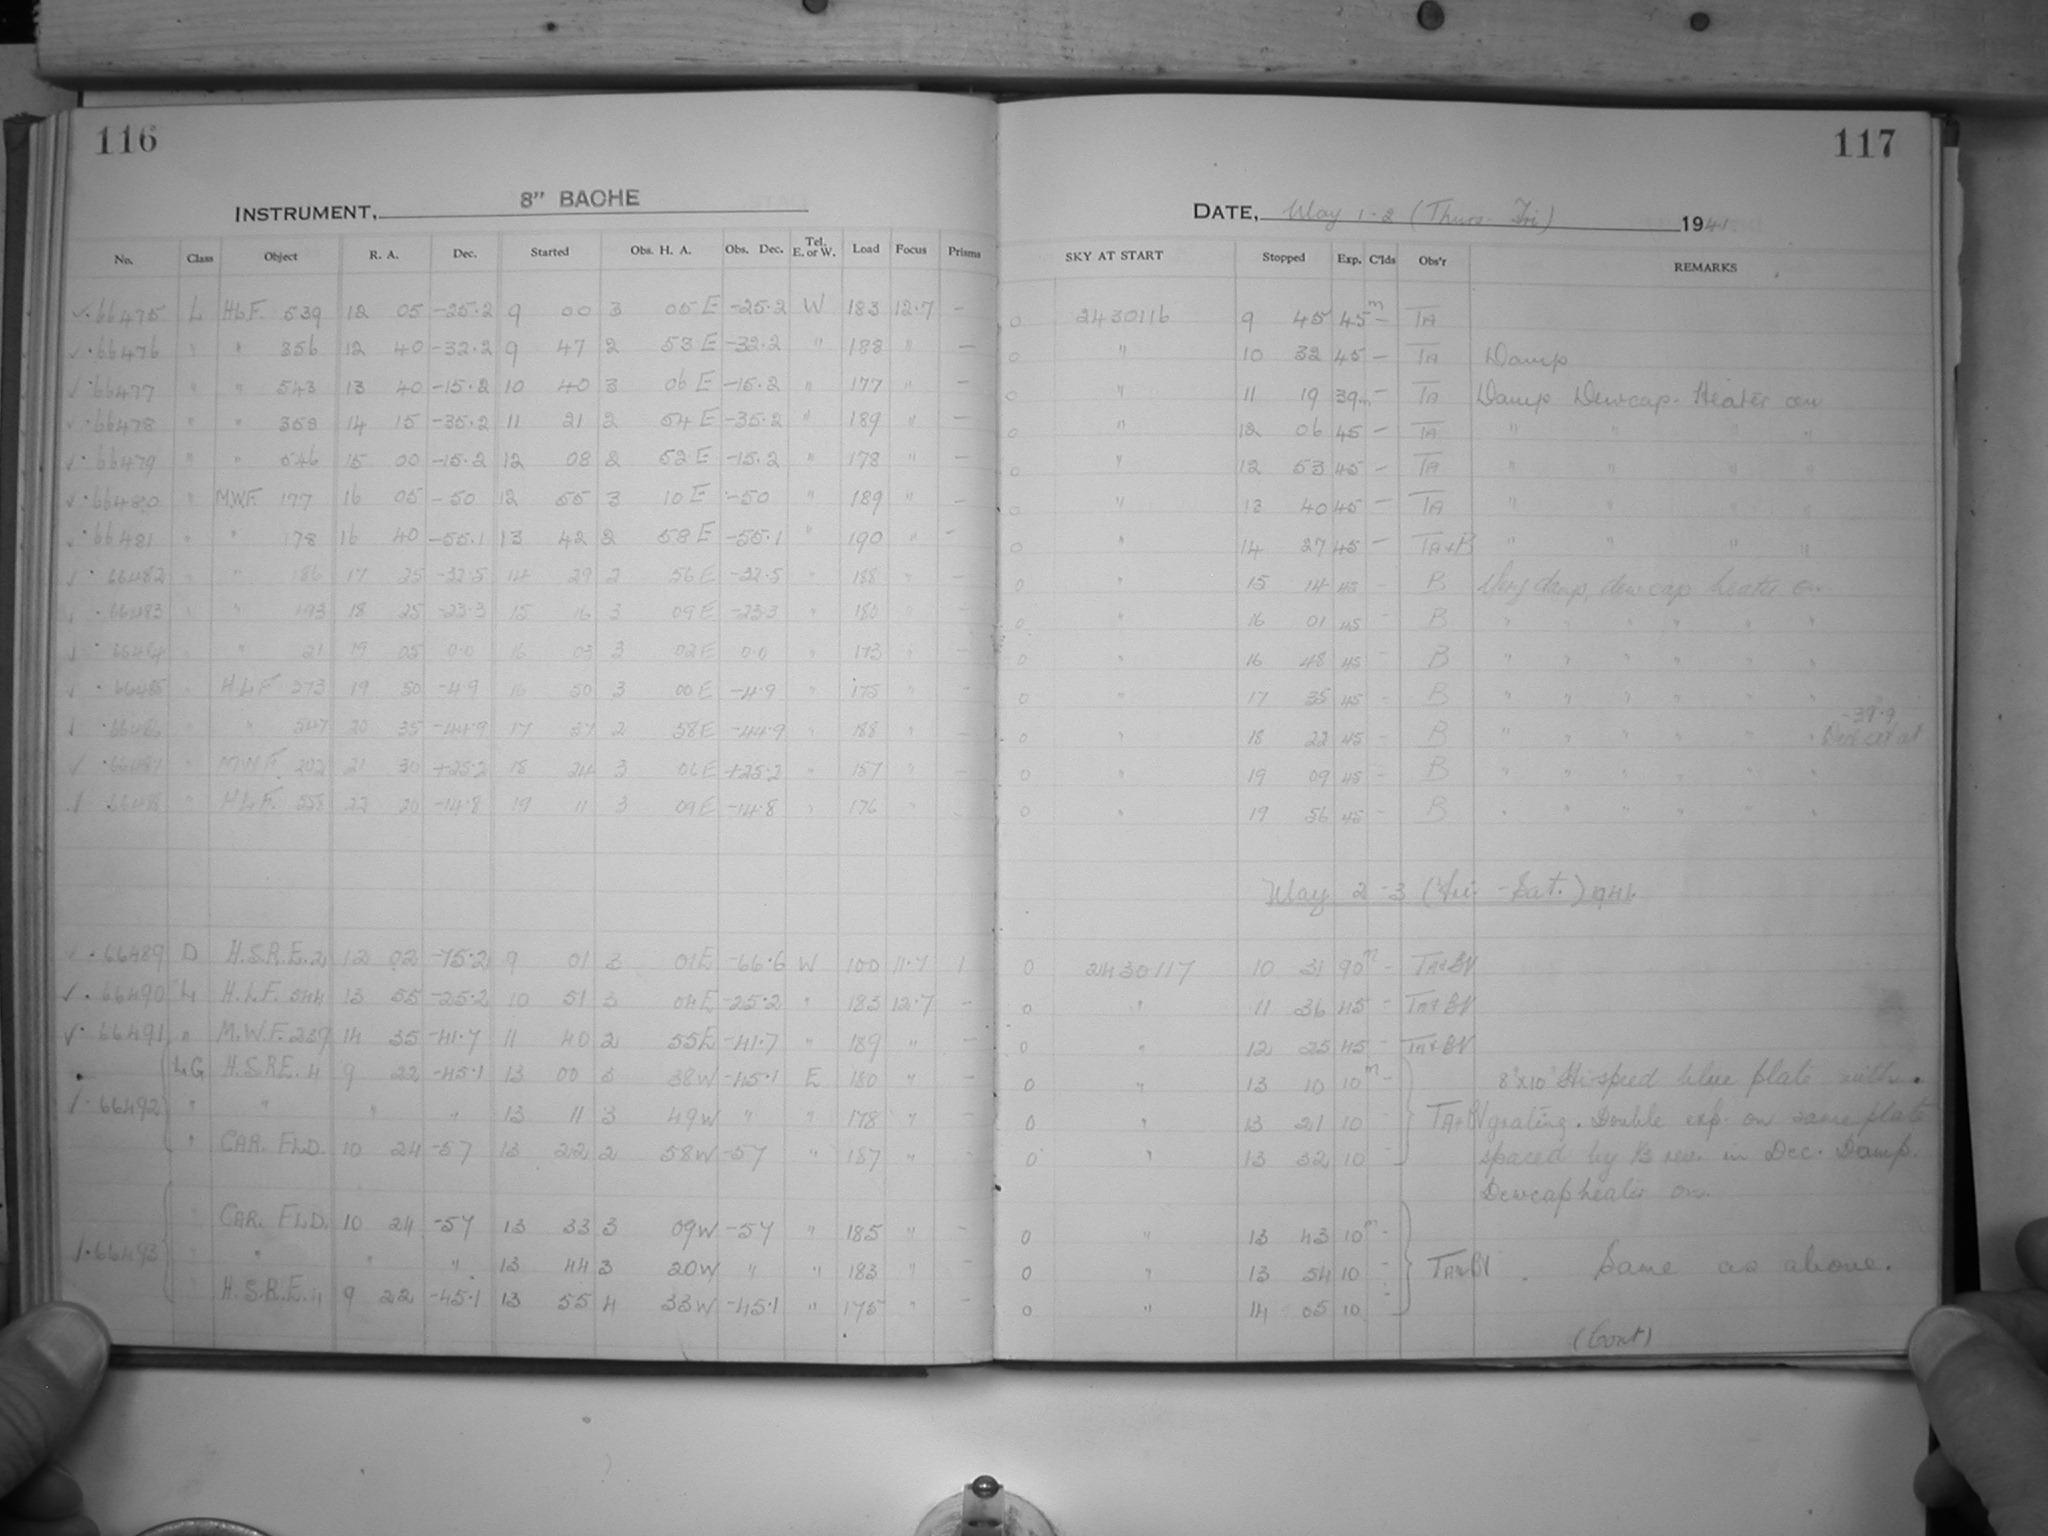 116
INSTRUMENT, 8" BACHE
No. Class Object R. A. Dec. Started Obs. H. A. Obs. Dec. Tel. E. or W. Load Focus Prisms
✓·66475 L H.L.F. 539 12 05 -25.2 9 00 3 05 E -25.2 W 183 12.7 -
✓·66476 " " 356 12 40 -32.2 9 47 2 53 E -32.2 " 188 " -
✓·66477 " " 543 13 40 -15.2 10 40 3 06 E -15.2 " 177 " -
✓·66478 " " 14 15 -35.2 11 21 2 54 E -35.2 " 189 " -
✓·66479 " " 546 15 00 -15.2 12 08 2 52 E -15.2 " 178 " -
✓·66480 " M.W.F. 177 16 05 -50 12 55 3 10 E -50 " 189 " -
✓·66481 " " 178 16 40 -55.1 13 42 2 58 E -55.1 " 190 " -
✓·66482 " " 186 17 25 -32.5 14 29 2 56 E -32.5 " 188 " -
✓·66483 " " 193 18 25 -23.3 15 16 3 09 E -23.3 " 180 " -
✓·66484 " " 21 19 05 0.0 16 03 3 02 E 0.0 " 173 " -
✓·66485 " H.L.F. 273 19 50 -4.9 16 50 3 00 E -4.9 " 175 " -
✓·66486 " " 547 20 35 -44.9 17 37 2 58 E -44.9 " 188 " -
✓·66487 " M.W.F. 202 21 30 +25.2 18 24 3 06 E +25.2 " 157 " -
✓·66488 " H.L.F. 558 22 20 -14.8 19 11 3 09 E -14.8 " 176 " -
✓·66489 D H.S.R.E. 2 12 02 -75.2 9 01 3 01 E -66.6 W 100 11.7 1
✓·66490 L H.L.F. 544 13 55 -25.2 10 51 3 04 E -25.2 " 183 12.7 -
✓·66491 " M.W.F. 239 14 35 -41.7 11 40 2 55 E -41.7 " 189 " -
LG H.S.R.E. 4 9 22 -45.1 13 00 3 38 W -45.1 E 180 " -
✓·66492 " " " " 13 11 3 49 W " " 178 " -
" CAR. FLD. 10 24 -57 13 22 2 58 W -57 " 187 " -
" CAR. FLD. 10 24 -57 13 33 3 09 W -57 " 185 " -
✓·66493 " " " " 13 44 3 20 W " " 183 " -
H.S.R.E. 4 9 22 -45.1 13 55 4 33 W -45.1 " 175 " -
117
DATE, May 1-2 (Thurs-Fri) 1941
SKY AT START Stopped Exp. C'lds Obs'r REMARKS
0 2430116 9 45 45m - TA
0 " 10 32 45 - TA Damp
0 " 11 19 39m - TA Damp Dewcap-Heater on
0 " 12 06 45 - TA " " " "
0 " 12 53 45 - TA " " " "
0 " 13 40 45 - TA " " " "
0 " 14 27 45 - TA+B " " " "
0 " 15 14 45 - B Very damp, dewcap heater on
0 " 16 01 45 - B " " " " " "
0 " 16 48 45 - B " " " " " "
0 " 17 35 45 - B " " " " " "
-39.9
0 " 18 22 45 - B " " " " " " Dec set at
0 " 19 09 45 - B " " " " " "
0 " 19 56 45 - B " " " " " "
May 2-3 (Fri.-Sat.) 1941.
0 2430117 10 31 90m - TA+BV
0 " 11 36 45 - TA+BV
0 " 12 25 45 - TA+BV
0 " 13 10 10m - 8"x10" Hi-speed blue plate with
0 " 13 21 10 TA+BV grating. Double exp. on same plate
0 " 13 32 10 - spaced by 13 rev. in Dec. Damp.
Dewcap heater on.
0 " 13 43 10m -
0 " 13 54 10 - TA+BV. Same as above.
0 " 14 05 10 -
(Cont)